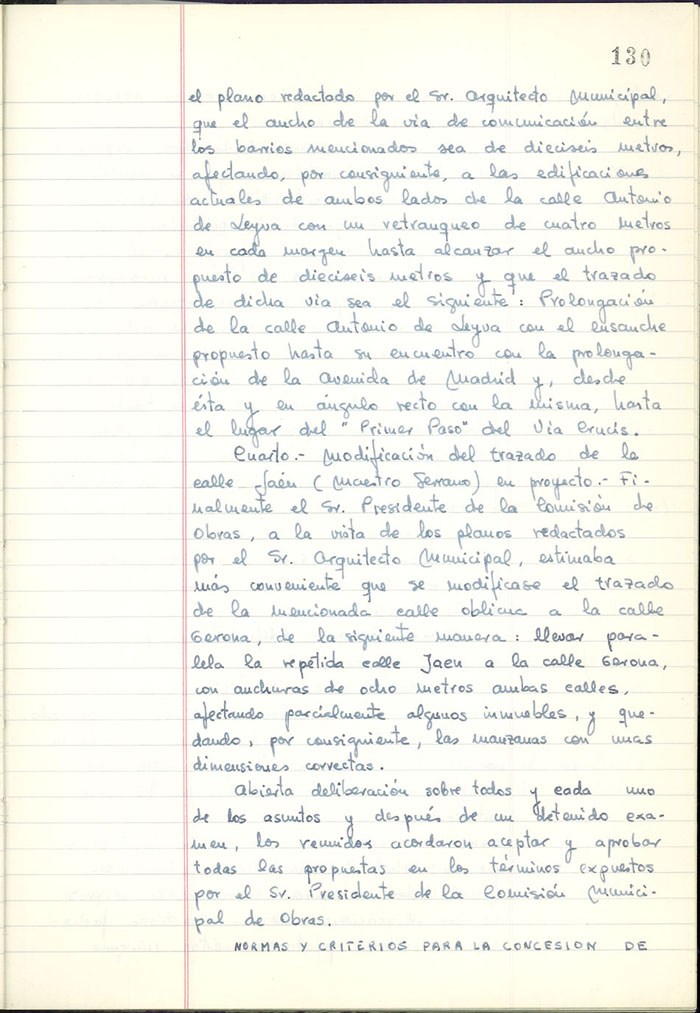 130
el plano redactado por el Sr. Arquitecto Municipal,
que el ancho de la via de comunicación entre
los barrios mencionados sea de dieciseis metros,
afectando, por consiguiente, a las edificaciones
actuales de ambos lados de la calle Antonio
de Leyva con un retranqueo de cuatro metros
en cada margen hasta alcanzar el ancho pro-
puesto de dieciseis metros y que el trazado
de dicha via sea el siguiente: Prolongación
de la calle Antonio de Leyva con el ensanche
propuesto hasta su encuentro con la prolonga-
ción de la Avenida de Madrid y, desde
ésta y en ángulo recto con la misma, hasta
el lugar del "Primer Paso" del Via Crucis.
Cuarto.- Modificación del trazado de la
calle Jaén (Maestro Serrano) en proyecto.- Fi-
nalmente el Sr. Presidente de la Comisión de
Obras, a la vista de los planos redactados
por el Sr. Arquitecto Municipal, estimaba
más conveniente que se modificase el trazado
de la mencionada calle oblicua a la calle
Gerona, de la siguiente manera: llevar para-
lela la repetida calle Jaen a la calle Gerona,
con anchuras de ocho metros ambas calles,
afectando parcialmente algunos inmuebles, y que-
dando, por consiguiente, las manzanas con unas
dimensiones correctas.
Abierta deliberación sobre todos y cada uno
de los asuntos y después de un detenido exa-
men, los reunidos acordaron aceptar y aprobar
todas las propuestas en los términos expuestos
por el Sr. Presidente de la Comisión Munici-
pal de Obras.
NORMAS Y CRITERIOS PARA LA CONCESION DE